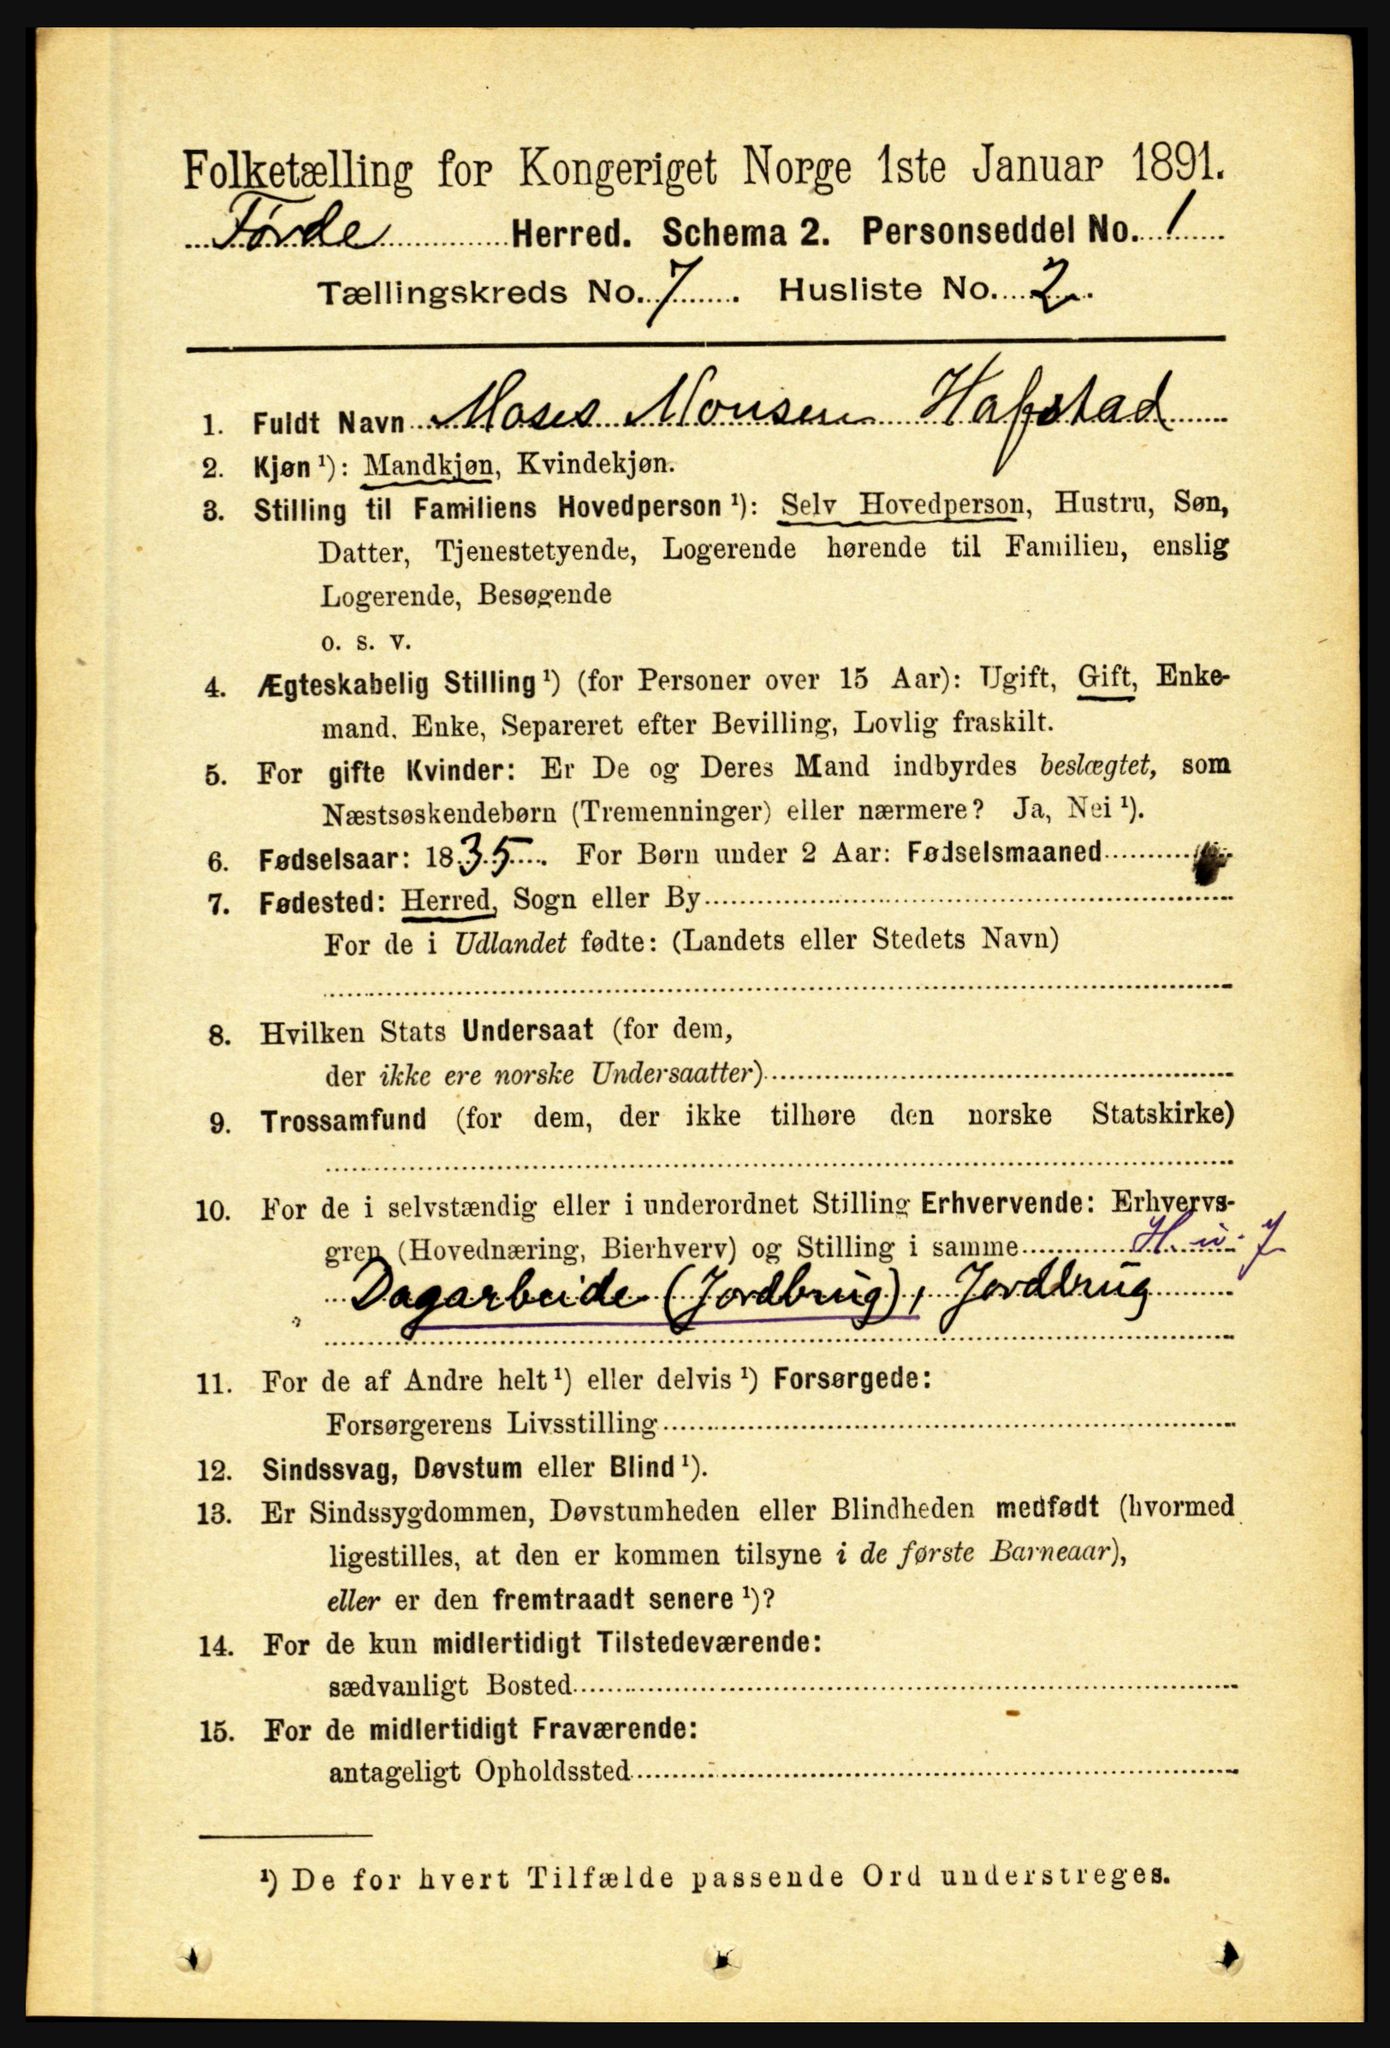 Folketælling for Kongeriget Norge 1ste Januar 1891.
Førde Herred. Schema 2. Personseddel No. 1
Tællingskreds No. 7. Husliste No. 2.
1. Fuldt Navn Moses Monsen Hafstad
2. Kjøn ¹): Mandkjøn, Kvindekjøn.
3. Stilling til Familiens Hovedperson ¹): Selv Hovedperson, Hustru, Søn,
Datter, Tjenestetyende, Logerende hørende til Familien, enslig
Logerende, Besøgende
o. s. v.
4. Ægteskabelig Stilling ¹) (for Personer over 15 Aar): Ugift, Gift, Enke-
mand, Enke, Separeret efter Bevilling, Lovlig fraskilt.
5. For gifte Kvinder: Er De og Deres Mand indbyrdes beslægtet, som
Næstsøskendebørn (Tremenninger) eller nærmere? Ja, Nei ¹).
6. Fødselsaar: 1835. For Børn under 2 Aar: Fødselsmaaned
7. Fødested: Herred, Sogn eller By
For de i Udlandet fødte: (Landets eller Stedets Navn)
8. Hvilken Stats Undersaat (for dem,
der ikke ere norske Undersaatter)
9. Trossamfund (for dem, der ikke tilhøre den norske Statskirke)
10. For de i selvstændig eller i underordnet Stilling Erhvervende: Erhvervs-
gren (Hovednæring, Bierhverv) og Stilling i samme
Dagarbeide (Jordbrug), Jordbrug
11. For de af Andre helt ¹) eller delvis ¹) Forsørgede:
Forsørgerens Livsstilling
12. Sindssvag, Døvstum eller Blind ¹).
13. Er Sindssygdommen, Døvstumheden eller Blindheden medfødt (hvormed
ligestilles, at den er kommen tilsyne i de første Barneaar),
eller er den fremtraadt senere ¹)?
14. For de kun midlertidigt Tilstedeværende:
sædvanligt Bosted
15. For de midlertidigt Fraværende:
antageligt Opholdssted
¹) De for hvert Tilfælde passende Ord understreges.